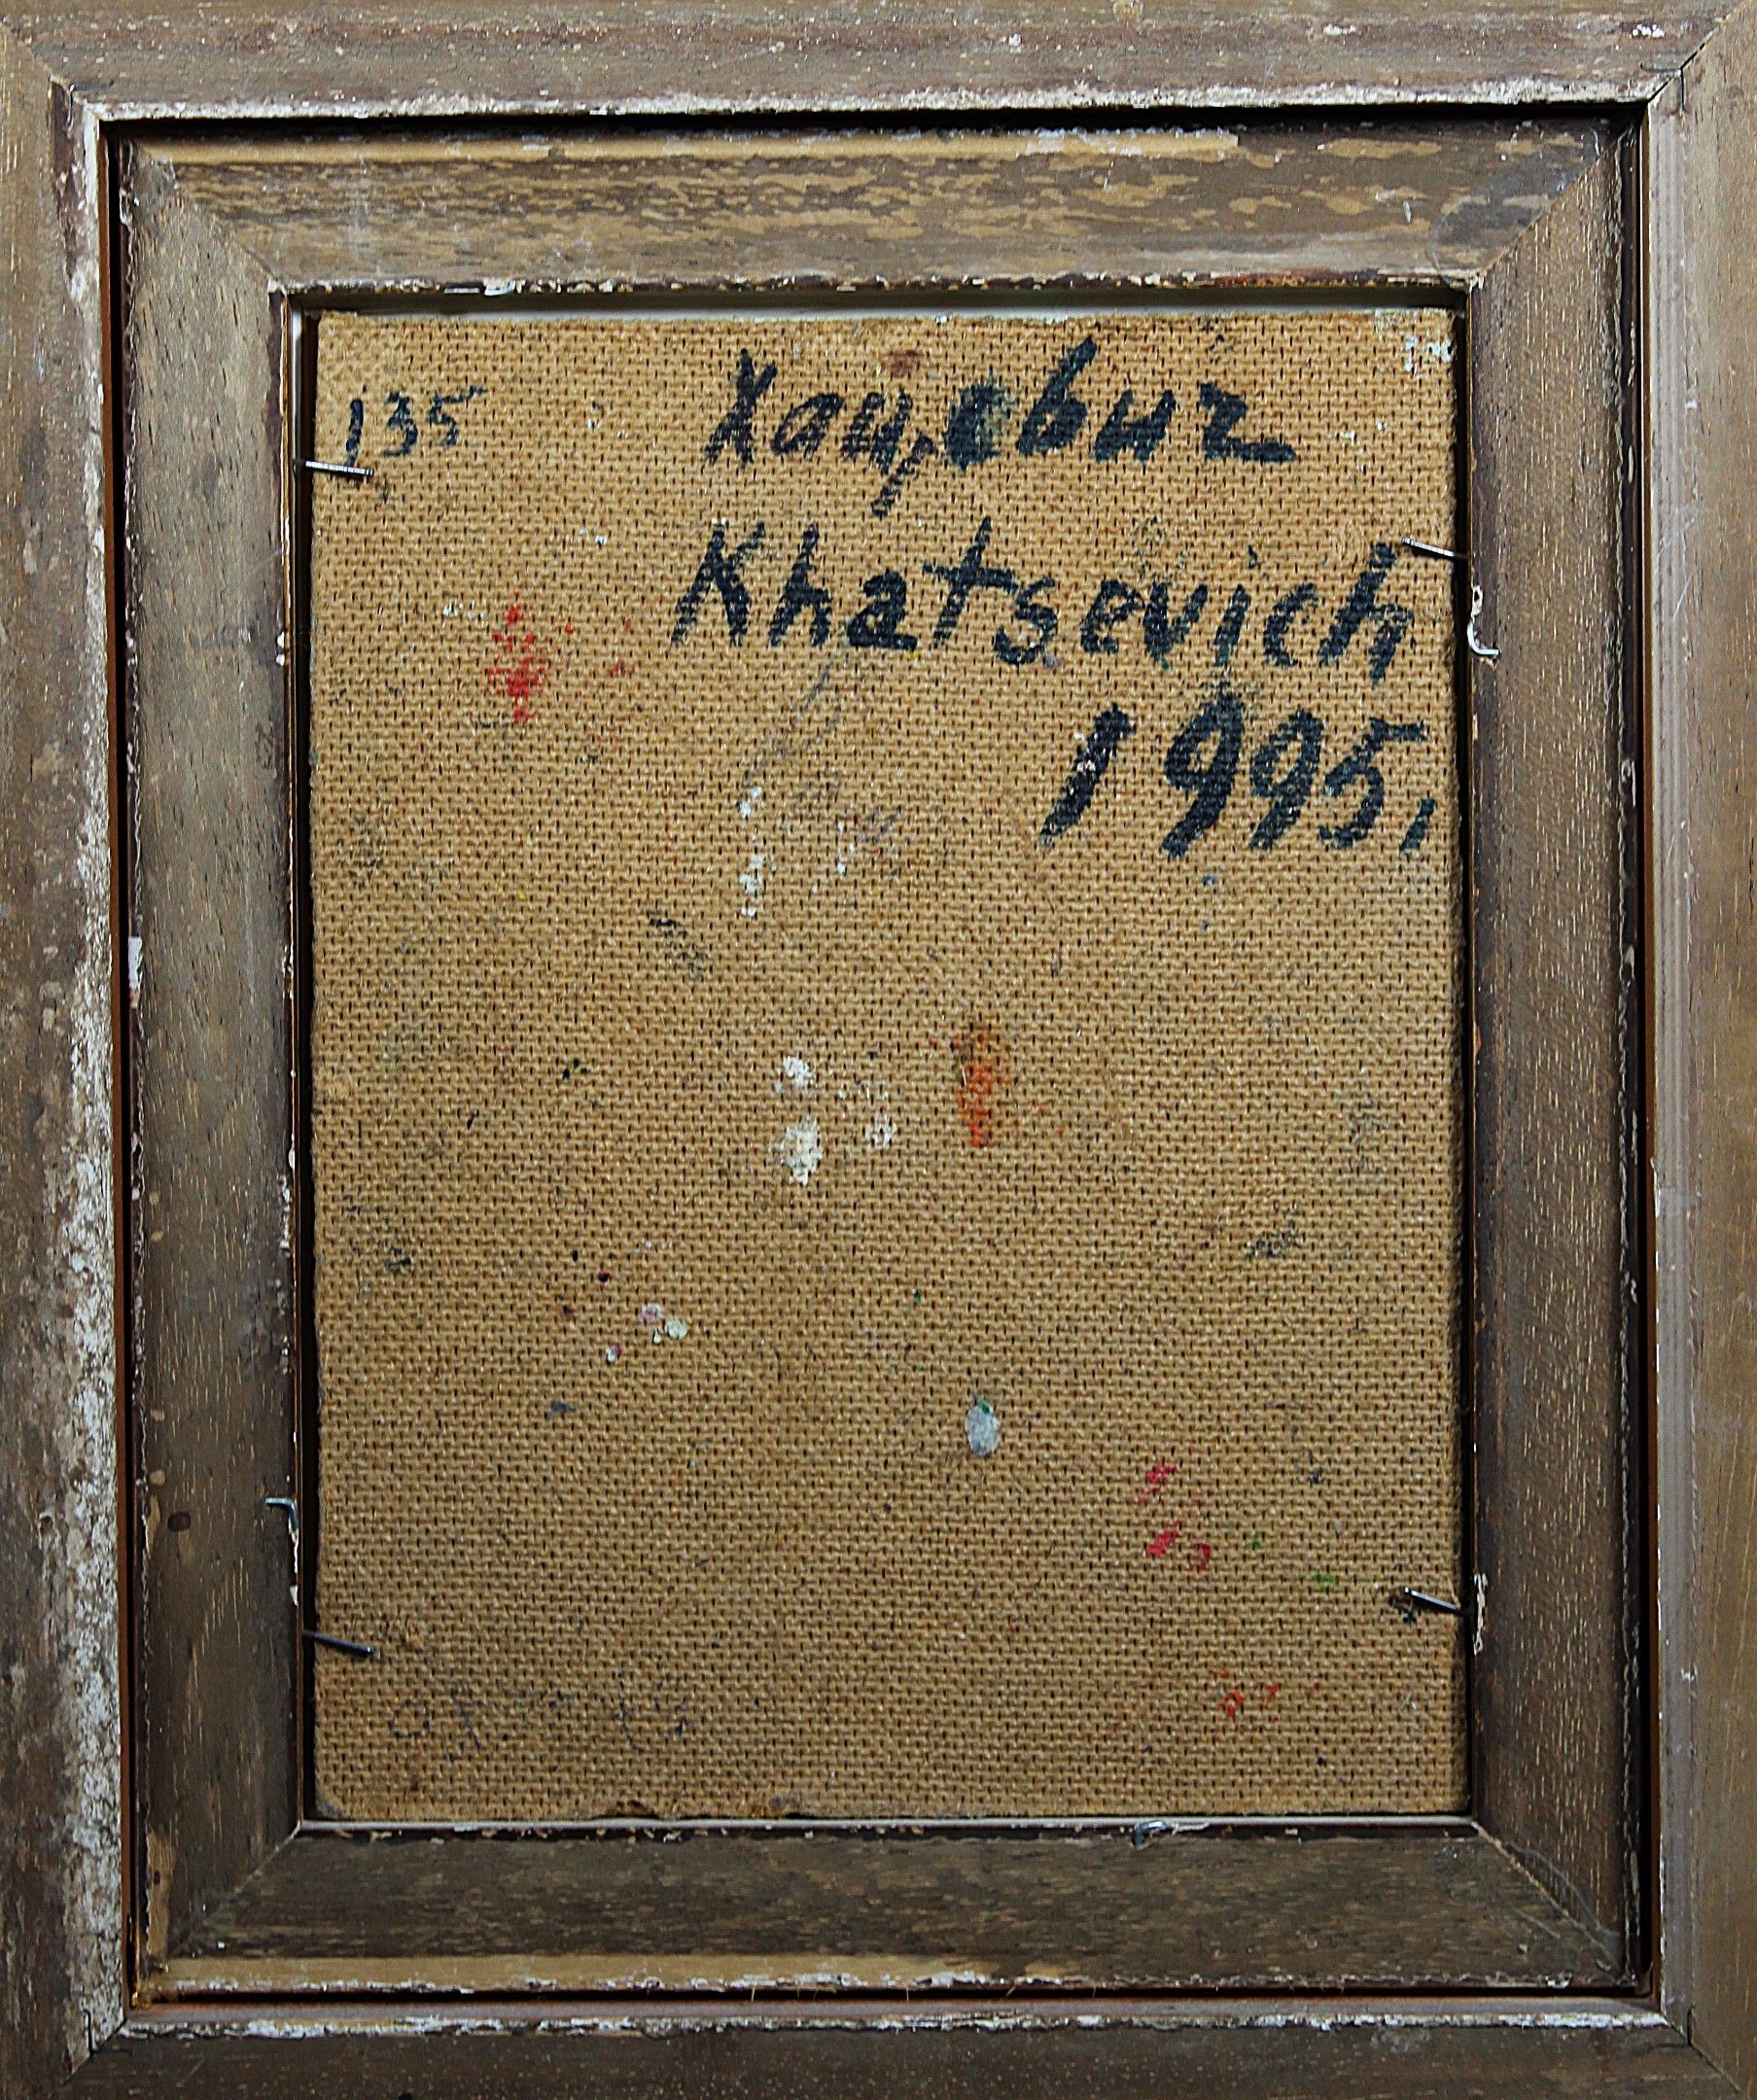 135
Хацевич
Khatsevich
1995,